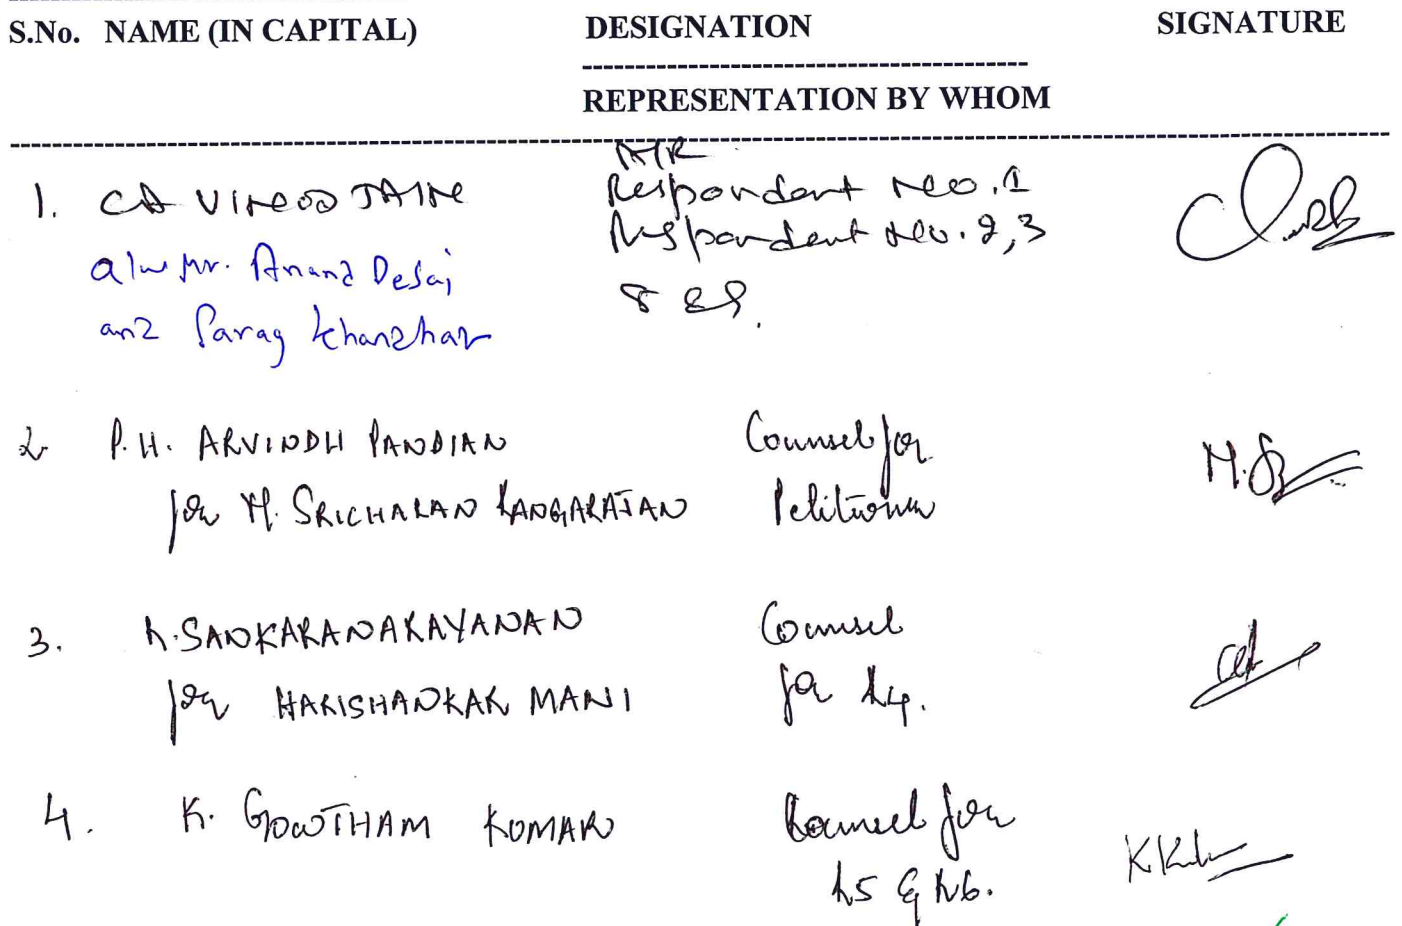 S.No. NAME (IN CAPITAL) DESIGNATION SIGNATURE
REPRESENTATION BY WHOM
1. CA VINOD JAIN
a/w Mr. Anand Desai
and Parag Khandhar
A/R
Respondent No.1
Respondent No. 2,3
8 &9.
2 P.H. ARVINDH PANDIAN
for M. SRICHARAN RANGARAJAN
Counsel for
Petitioner
3. R.SANKARANARAYANAN
for HARISHANKAR MANI
Counsel
for R4.
4. K. GOWTHAM KUMAR
Counsel for
R5 & R6.